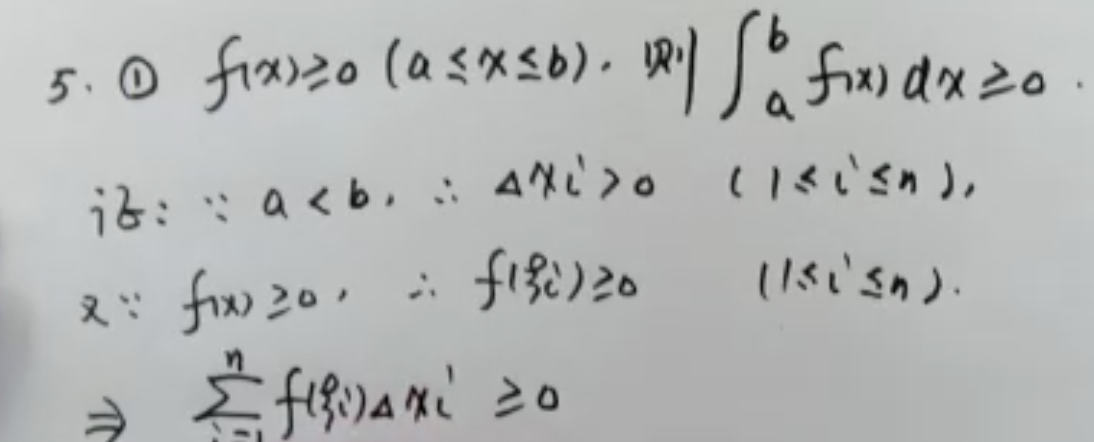 5. ① f(x)≥0 (a≤x≤b). 则 ∫_a^b f(x)dx≥0.
证: ∵ a<b, ∴ Δxi>0 (1≤i≤n),
又∵ f(x)≥0, ∴ f(ξi)≥0 (1≤i≤n).
⇒ ∑_{i=1}^n f(ξi)Δxi ≥0